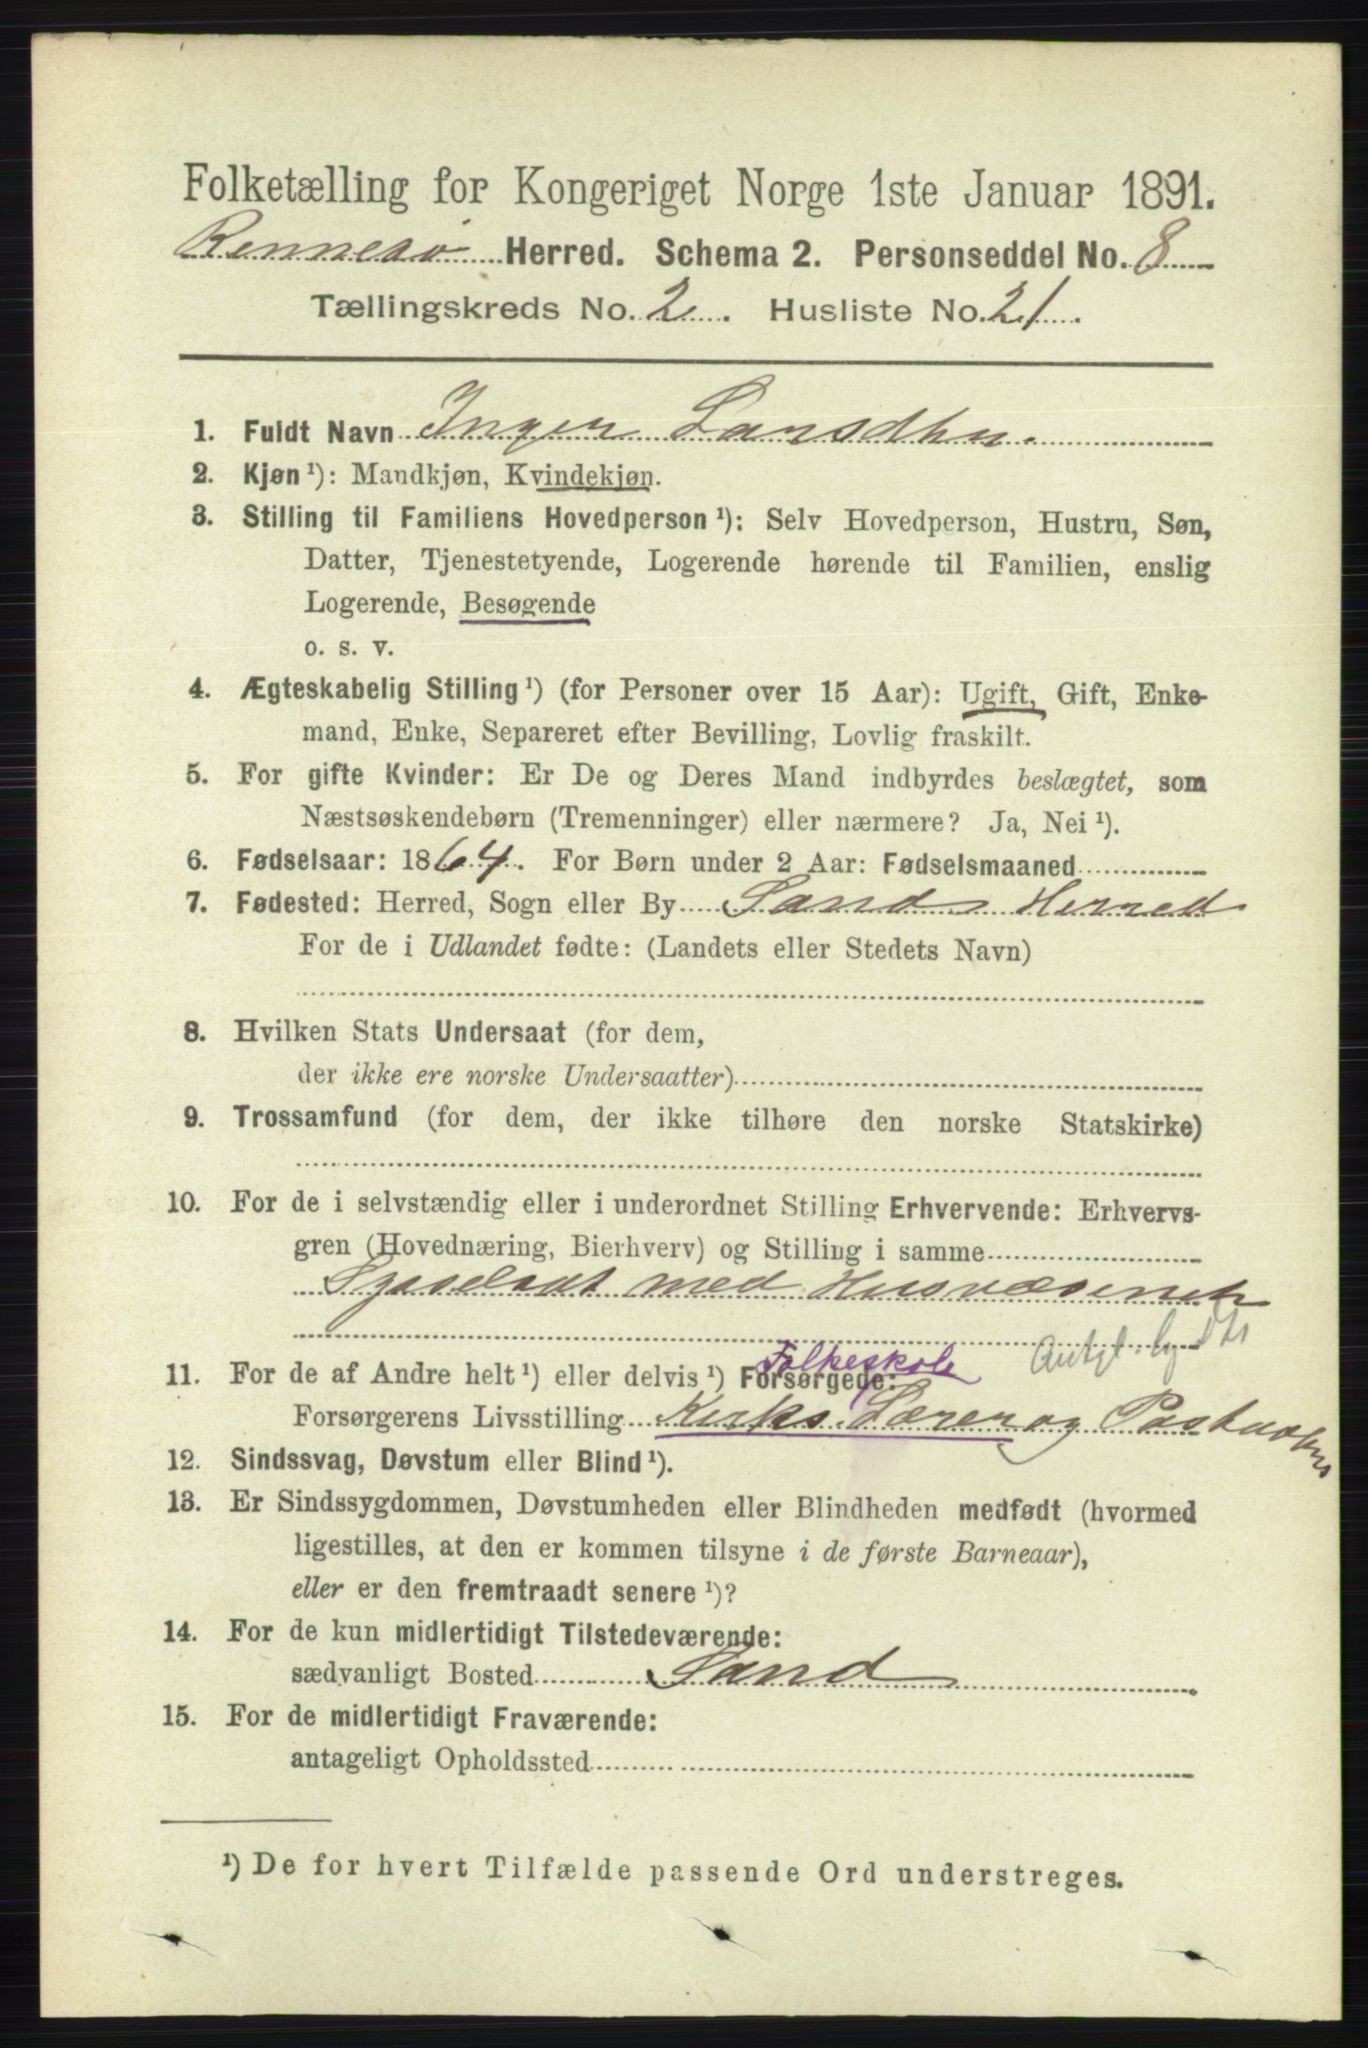 Folketælling for Kongeriget Norge 1ste Januar 1891.
Rennesø Herred. Schema 2. Personseddel No. 8
Tællingskreds No. 2. Husliste No. 21.
1. Fuldt Navn Inger Larsdtn.
2. Kjøn ¹): Mandkjøn, Kvindekjøn.
3. Stilling til Familiens Hovedperson ¹): Selv Hovedperson, Hustru, Søn,
Datter, Tjenestetyende, Logerende hørende til Familien, enslig
Logerende, Besøgende
o. s. v.
4. Ægteskabelig Stilling ¹) (for Personer over 15 Aar): Ugift, Gift, Enke-
mand, Enke, Separeret efter Bevilling, Lovlig fraskilt.
5. For gifte Kvinder: Er De og Deres Mand indbyrdes beslægtet, som
Næstsøskendebørn (Tremenninger) eller nærmere? Ja, Nei ¹).
6. Fødselsaar: 1864. For Børn under 2 Aar: Fødselsmaaned
7. Fødested: Herred, Sogn eller By Sand Herred
For de i Udlandet fødte: (Landets eller Stedets Navn)
8. Hvilken Stats Undersaat (for dem,
der ikke ere norske Undersaatter)
9. Trossamfund (for dem, der ikke tilhøre den norske Statskirke)
10. For de i selvstændig eller i underordnet Stilling Erhvervende: Erhvervs-
gren (Hovednæring, Bierhverv) og Stilling i samme
Sysselsat med Husvæsenet
Folkeskole
11. For de af Andre helt ¹) eller delvis ¹) Forsørgede:
Forsørgerens Livsstilling Kirks. Lærer og Postaabner
12. Sindssvag, Døvstum eller Blind ¹).
13. Er Sindssygdommen, Døvstumheden eller Blindheden medfødt (hvormed
ligestilles, at den er kommen tilsyne i de første Barneaar),
eller er den fremtraadt senere ¹)?
14. For de kun midlertidigt Tilstedeværende:
sædvanligt Bosted Sand
15. For de midlertidigt Fraværende:
antageligt Opholdssted
¹) De for hvert Tilfælde passende Ord understreges.